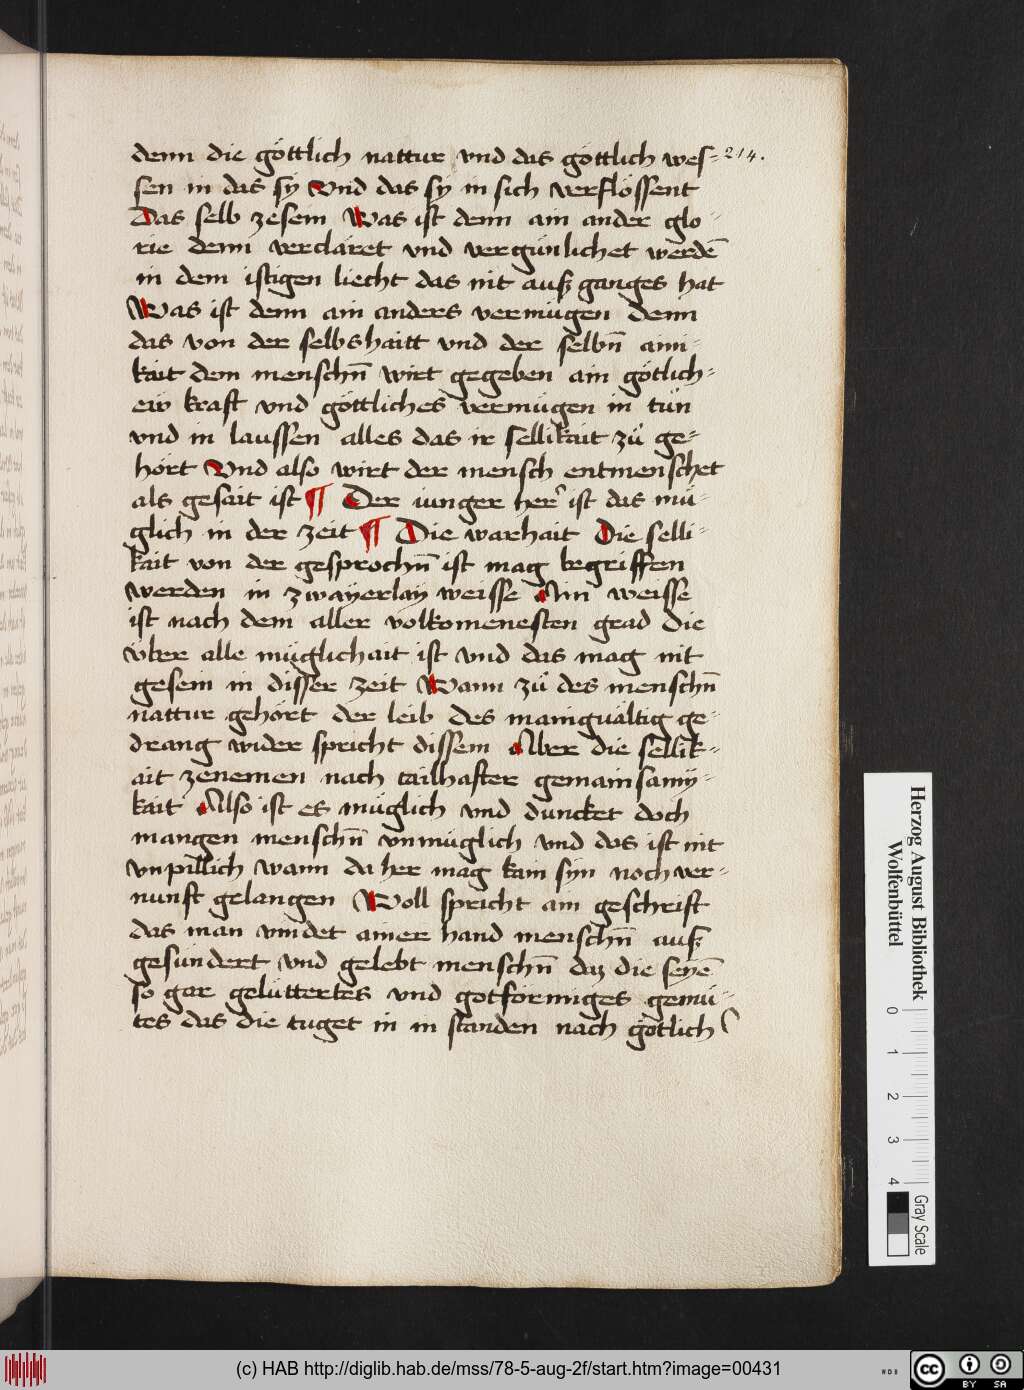 denn die göttlich nattur vnd das göttlich wes= 214.
sen in das sÿ Vnd das sÿ in sich verflössent
Das selb zesein Was ist denn ain ander glo=
rie denn verclaret vnd vergünlichet werdē
in dem istigen liecht das nit ausz ganges hat
Was ist denn ain anders vermügen denn
das von der selbshaitt vnd der selbn̄ aini=
kait dem menschn̄ wirt gegeben ain götlich=
eir kraft vnd göttliches vermügen in tün
vnd in laussen alles das ir sellikait zů ge=
hört Vnd also wirt der mensch entmenschet
als gesait ist ¶ Der iunger her ist das mü=
glich in der zeit ¶ Die warhait Die selli=
kait von der gesprochn̄ ist mag begriffen
werden in zwayerlay weisse Ain weisse
ist nach dem aller volkomenesten grad Die
über alle müglichait ist vnd das mag nit
gesein in disser zeit Wann zů des menschn̄
nattur gehört der leib des manigualtig ge=
drang wider spricht dissem Aber die sellik=
ait zenemen nach tailhafter gemainsamÿ=
kait Also ist es müglich vnd duncket doch
mangen menschn̄ vnmüglich vnd das ist nit
vnpillich wann da her mag kain sÿn noch ver=
nunft gelangen Woll spricht ain geschrift
das man vindet ainer hand menschn̄ ausz
gesündert vnd gelebt menschn̄ daz die seyē
so gar gelüttertes vnd gotförmiges gemü=
tes das die tuget in in standen nach götlich
Herzog August Bibliothek
Wolfenbüttel
0 1 2 3 4
Gray Scale
(c) HAB http://diglib.hab.de/mss/78-5-aug-2f/start.htm?image=00431
cc BY SA